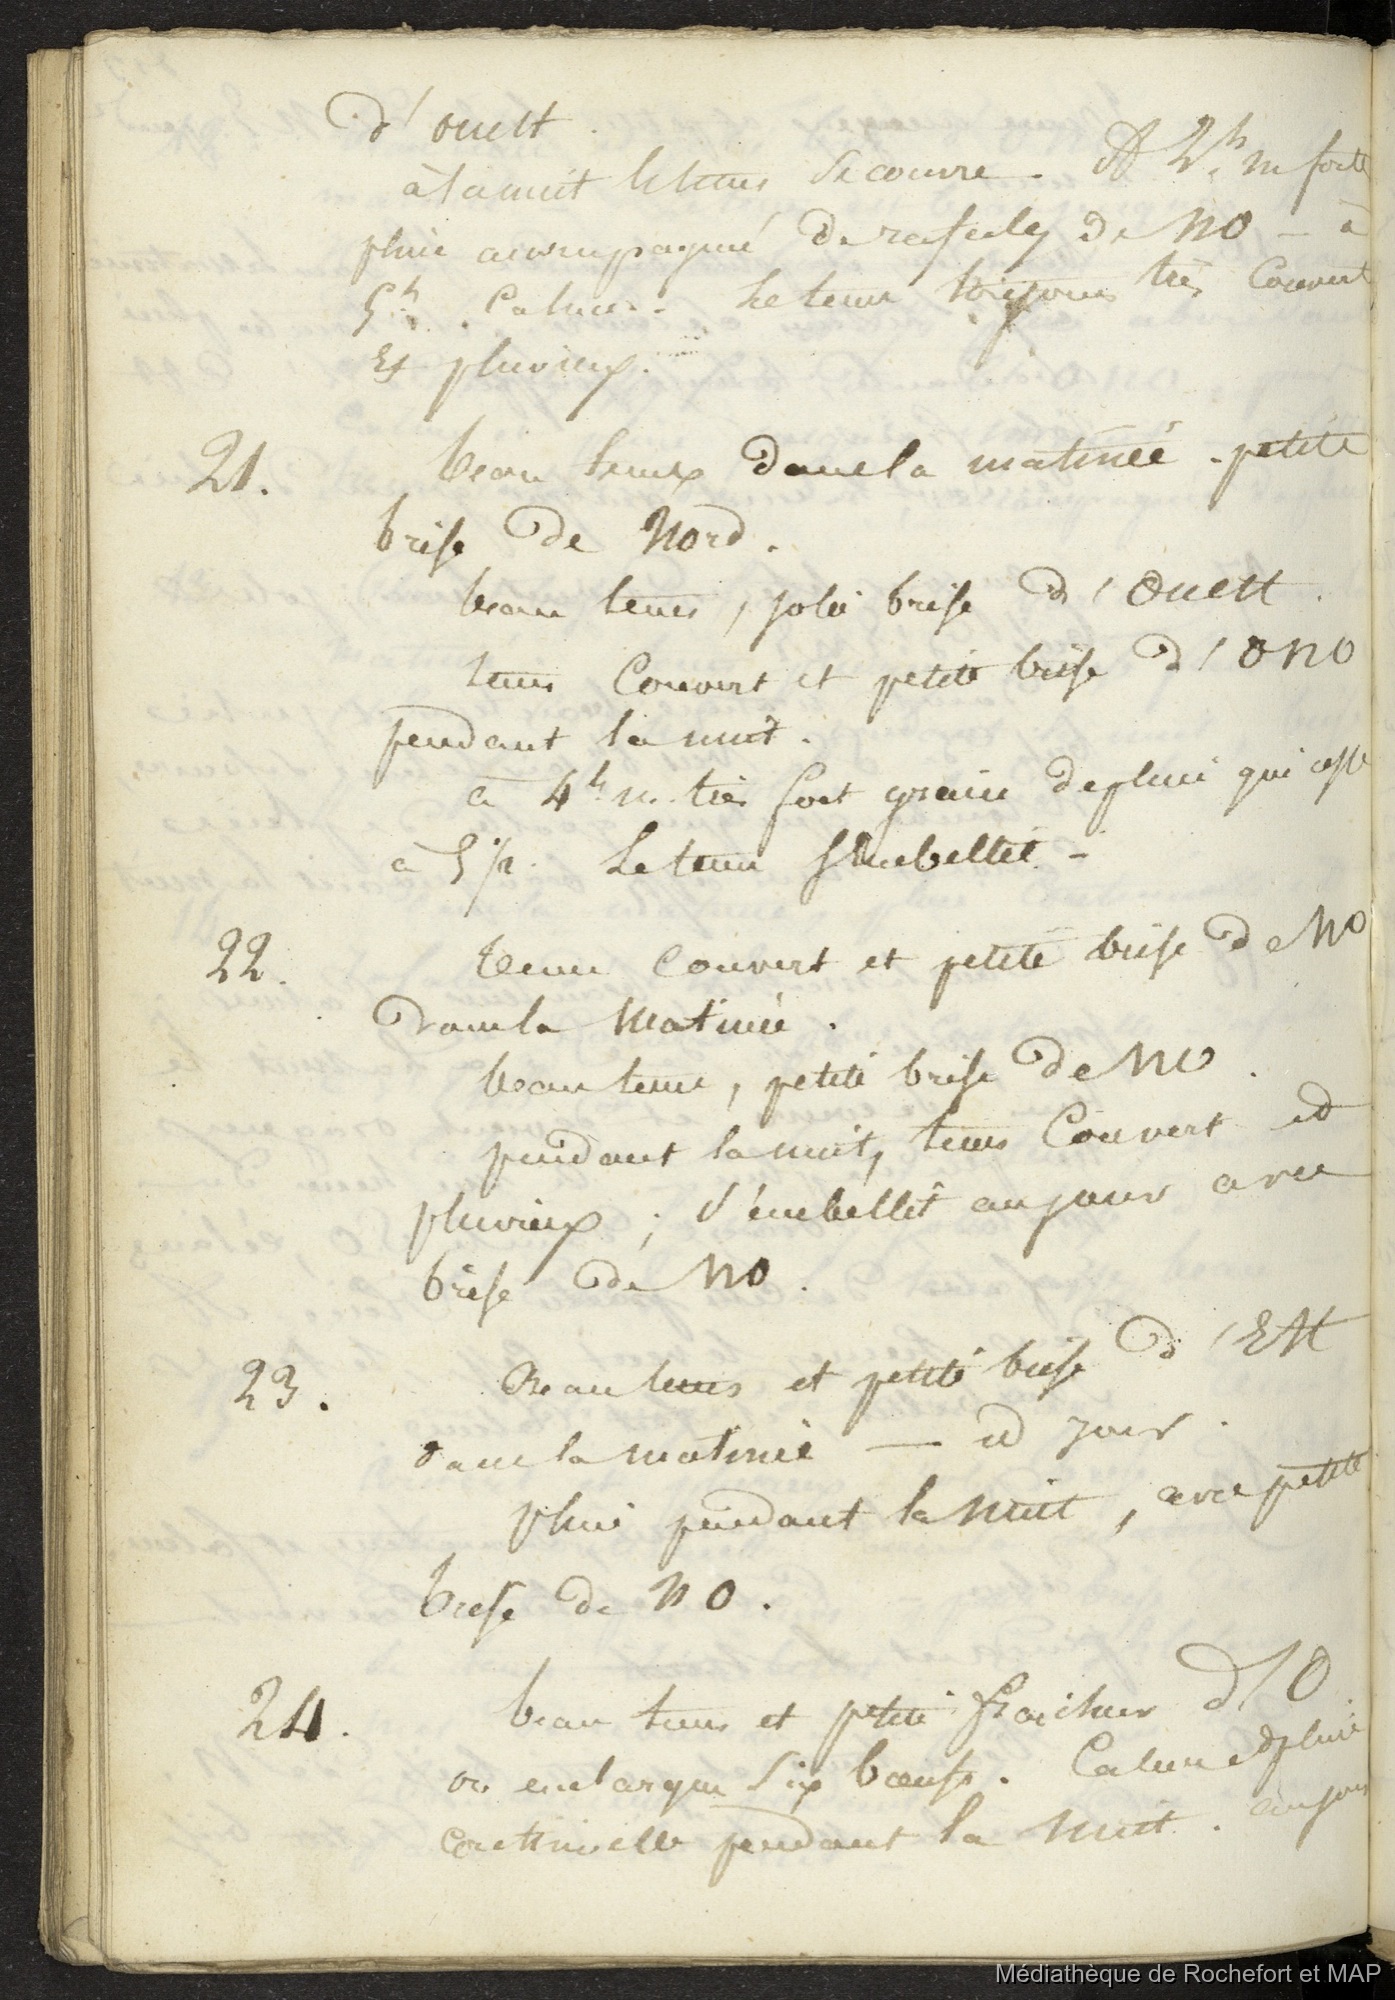 d'ouest.
à la nuit le tems se couvre. A 2h. m forte
pluie accompagné de rafales de NO — à
5h. Calme. Le tems toujours très Couvert
Et pluvieux.
21. beau temps dans la matinée. petite
brise de Nord.
beau tems, jolie brise d'Ouest.
tems Couvert et petite brise d'ONO
pendant la nuit.
à 4h. m. très fort grain de pluie qui cesse
à 5 1/2. Le tems s'embellit -
22. Tems Couvert et petite brise de NO
dans la Matinée.
beau tems, petite brise de NO.
pendant la nuit, tems Couvert et
pluvieux; s'embellit au jour avec
brise de NO.
23. Beau tems et petite brise d'Est
dans la matinée — id jour.
pluie pendant la Nuit, avec petite
brise de NO.
24. beau tems et petite fraicheur d'O
on embarque six bœufs. Calme et pluie
continuelle pendant la Nuit. au jour
Médiathèque de Rochefort et MAP